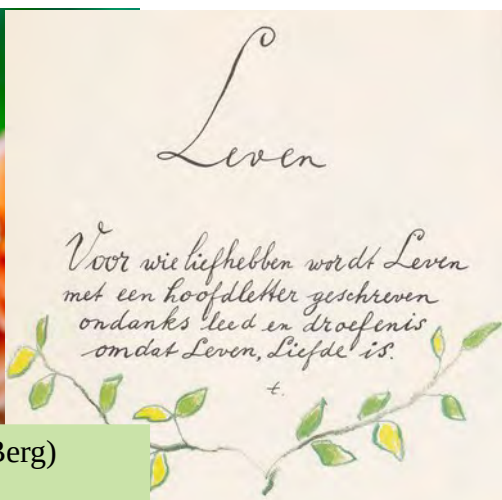 Leven
Voor wie liefhebben wordt Leven
met een hoofdletter geschreven
ondanks leed en droefenis
omdat Leven, Liefde is.
t.
Berg)